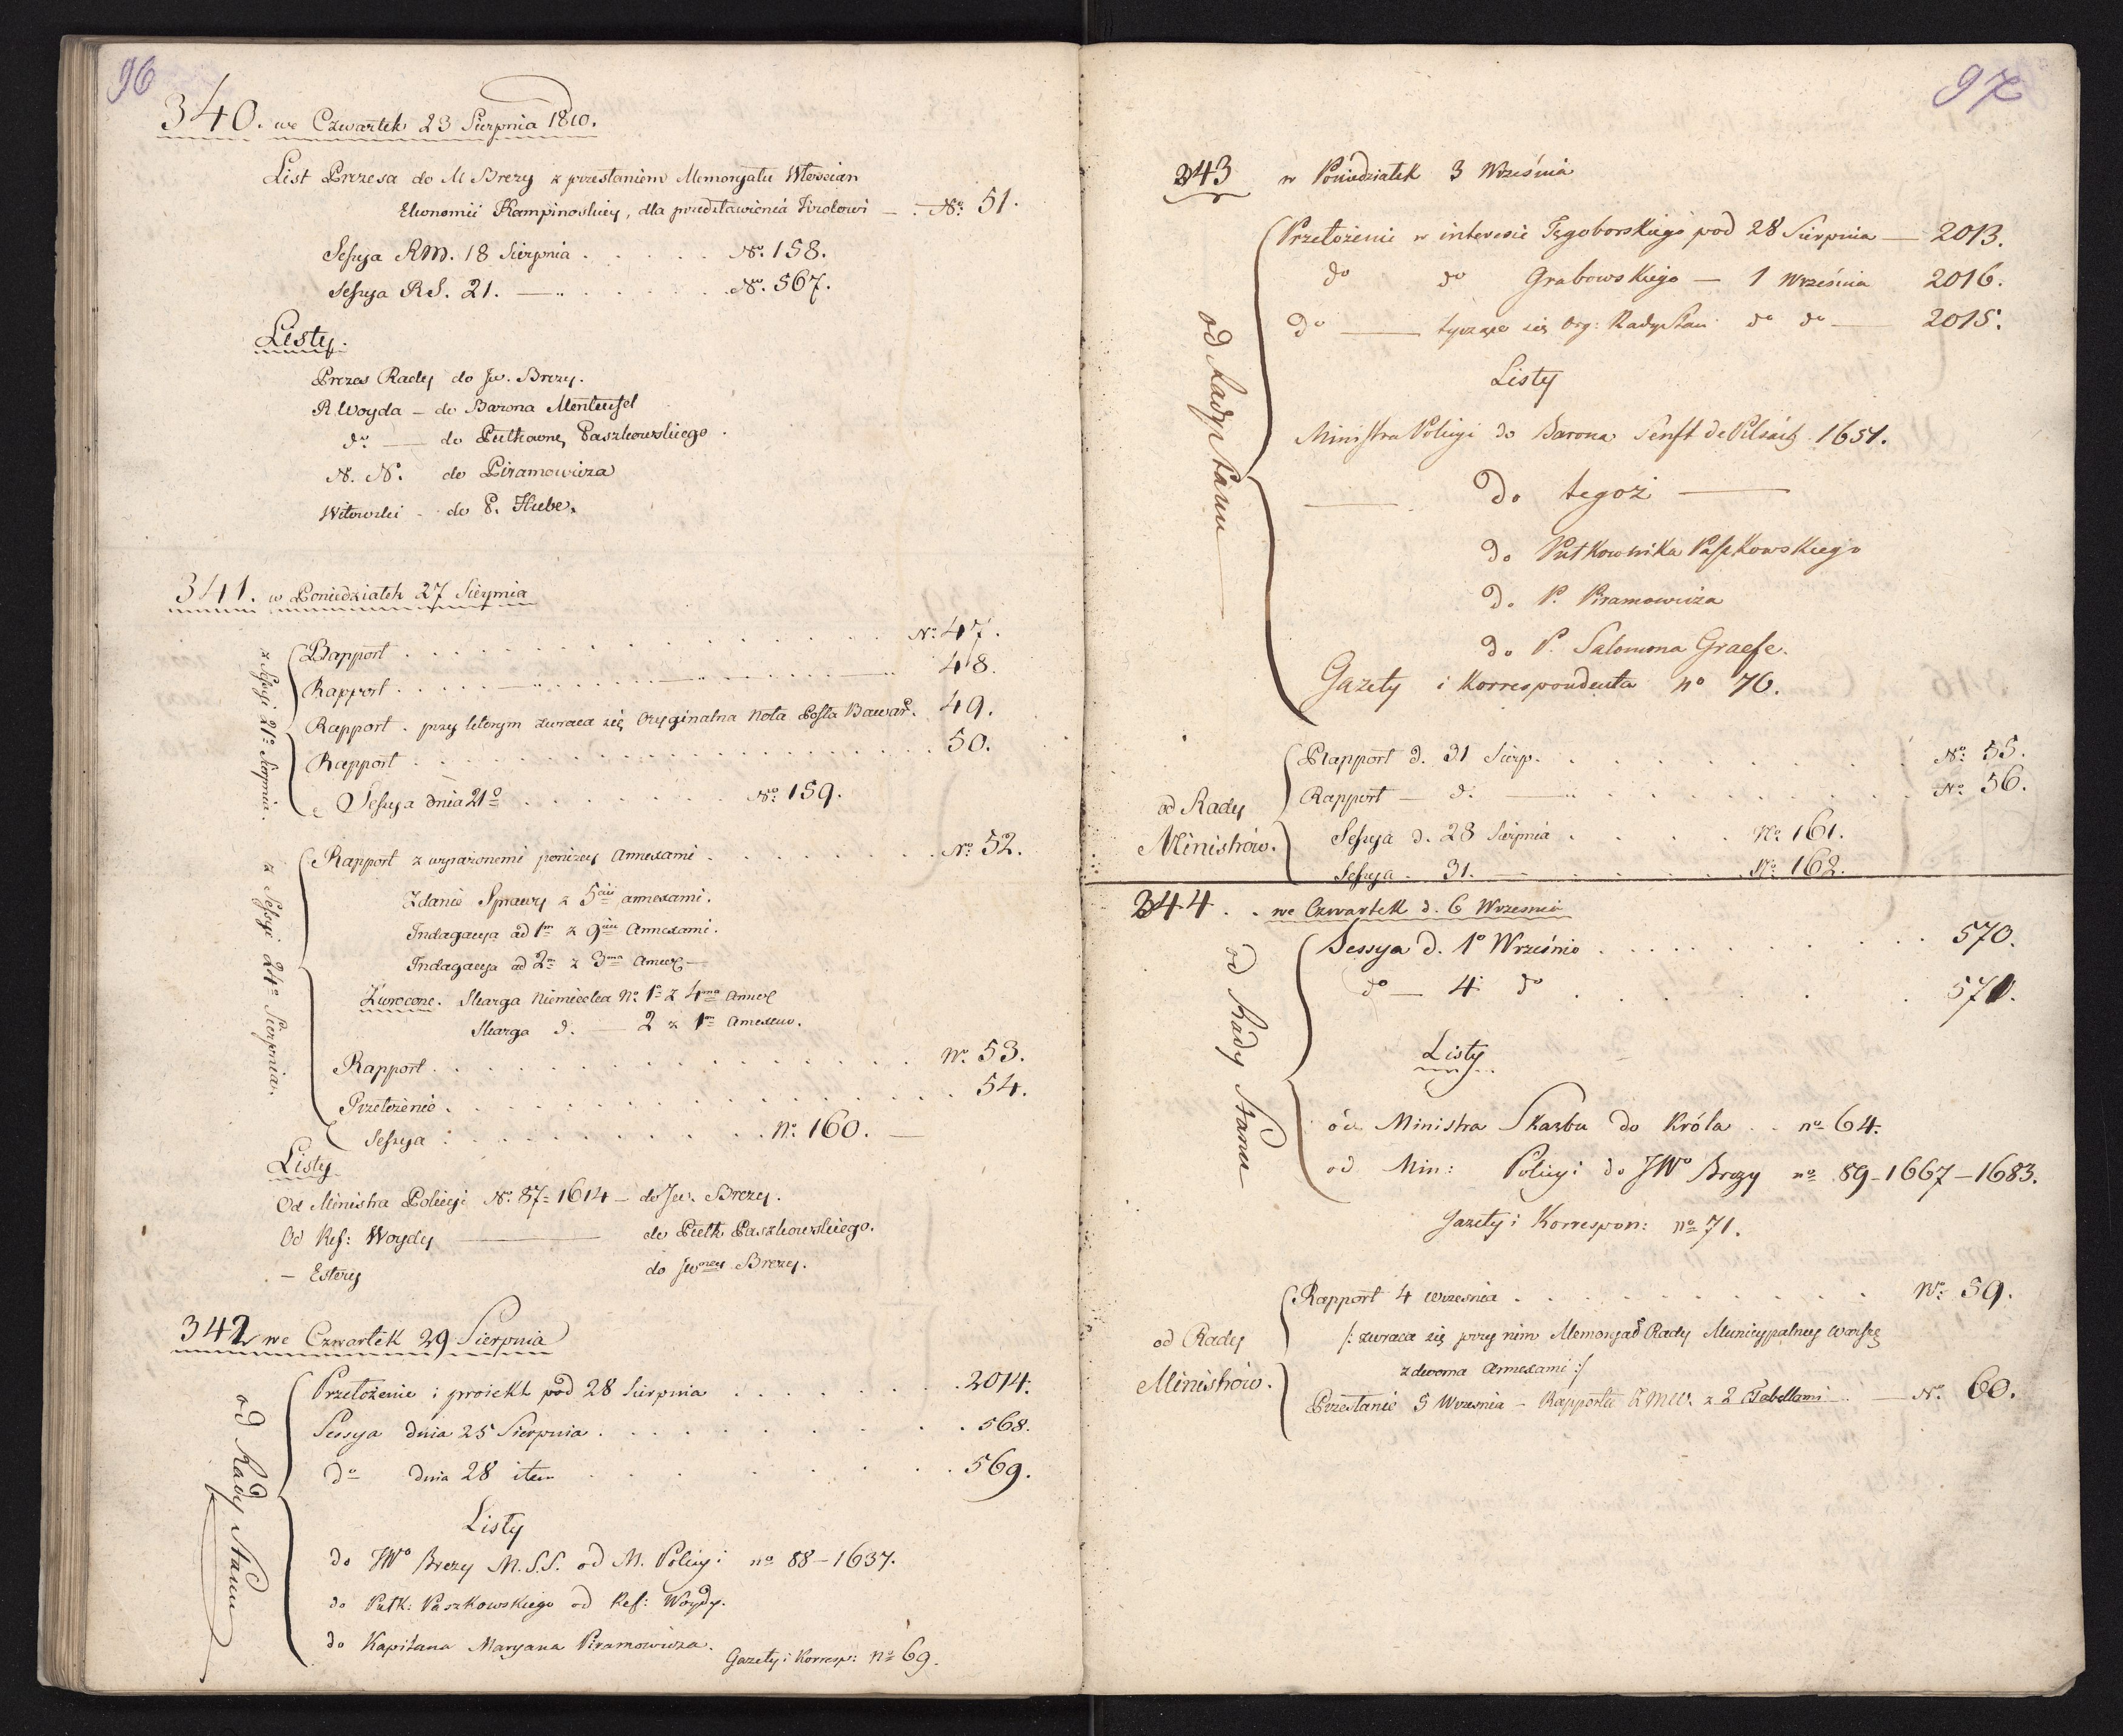 96
340. we Czwartek 23 Sierpnia 1810.
List Prezesa do M Brezy z przesłaniem Memoryału Włoscian
Ekonomii Kampinoskiey, dla przedstawienia Królowi — . No: 51.
Sessya RM. 18 Sierpnia . . . . . No. 158.
Sessya RS. 21. — „ . . . . . No. 567.
Listy.
Prezes Rady do Jw. Brezy.
R Woyda — do Barona Menteufel
do — do Pułkown Paszkowskiego.
N. N. do Piramowicza
Witowski - do P. Hube.
341. w Poniedziałek 27 Sierpnia
z Sessyi 21o Sierpnia.
Rapport . . . . . . . No: 47.
Rapport . . . . — „ . . . . — „ . . . . — „ 48.
Rapport . przy którym zwraca się Oryginalna Nota Posła Bawar. 49.
Rapport . . . . . . . 50.
Sessya dnia 21o . . . . . No: 159.
z Sessyi 24o Sierpnia.
Rapport z wyrażonemi poniżey Annexami . . . . . No. 52.
Zdanie Sprawy z 5cią annexami.
Indagacya ad 1m z 9cią Annexami.
Indagacya ad 2m z 3ma Annex —
Zwrocone. Skarga Niemiecka No 1o z 4ma Annex
Skarga d. — 2 z 1m Annexem.
Rapport . . . . . . . No. 53.
Przełożenie . . . . . . . 54.
Sessya . . . . . . . No: 160. —
Listy
Od Ministra Policyi No. 87 = 1614 — do Jw. Brezy.
Od Ref: Woydy — do Pułk Paszkowskiego.
— Estery do Jwney Brezy.
342 we Czwartek 29 Sierpnia
od Rady Stanu
Przełożenie i proiekt pod 28 Sierpnia . . . . . 2014.
Sessya dnia 25 Sierpnia . . . . . 568.
do dnia 28 item . . . . . 569.
Listy
do JWo Brezy M.S.S. od M. Policyi no 88 — 1637.
do Pułk: Paszkowskiego od Ref: Woydy.
do Kapitana Maryana Piramowicza.
Gazety i Korresp: No 69.
97
343 w Poniedziałek 3 Września
od Rady Stanu
Przełożenie w interesie Tęgoborskiego pod 28 Sierpnia — 2013.
do do Grabowskiego — 1 Września 2016.
do — tyczące się Org: Rady Stanu do do — 2015.
Listy
Ministra Policyi do Barona Senft de Pilsach 1651.
— Do tegoż —
do Pułkownika Paszkowskiego
do P. Piramowicza
do P. Salomona Graefe.
Gazety i Korrespondenta no 70.
od Rady Ministrów.
Rapport d. 31 Sierp. . . . . . . No: 55.
Rapport — d. — „ . . . . . No 56.
Sessya d. 28 Sierpnia . . . . No 161.
Sessya . 31. — . . . . . No 162.
344. . we Czwartek d. 6 Wrzesnia
od Rady Stanu
Sessya d. 1o Września . . . . . 570.
do — 4 do . . . . . 571.
Listy
od Ministra Skarbu do Króla . . no 64.
od Min: Policyi do JWo Brezy no 89 — 1667 — 1683.
Gazety i Korrespon: no 71.
od Rady Ministrów.
Rapport 4 Wrzesnia . . . . . No: 59.
/: zwraca się przy nim Memoryał Rady Municypalney Warsz
z dwoma Annexami :/
Przesłanie 5 Wrzesnia — Rapportu z 2 Tabellami . — No. 60.